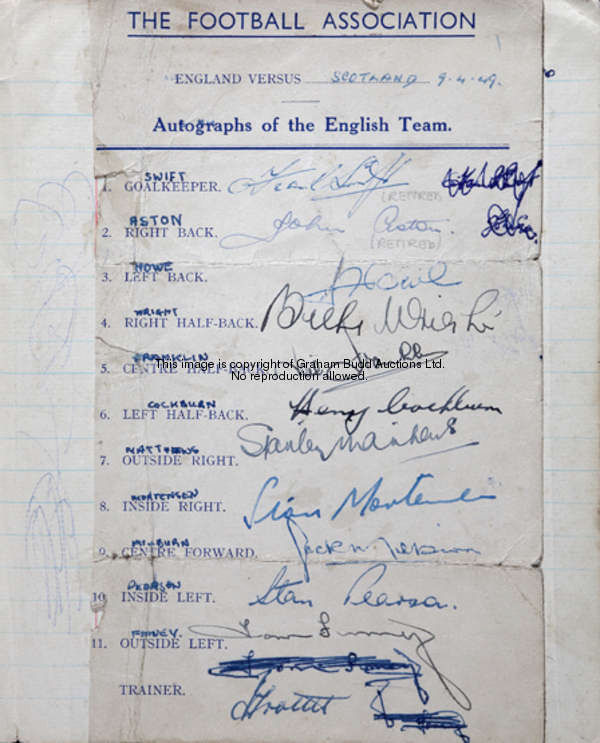 THE FOOTBALL ASSOCIATION
ENGLAND VERSUS SCOTLAND 9.4.49.
Autographs of the English Team.
SWIFT
1. GOALKEEPER. Frank Swift
(RETIRED)
ASTON
2. RIGHT BACK. John Aston.
(RETIRED)
HOWE
3. LEFT BACK.
WRIGHT
4. RIGHT HALF-BACK. Billy Wright
FRANKLIN
This image is copyright of Graham Budd Auctions Ltd.
5. CENTRE HALF-BACK.
No reproduction allowed.
COCKBURN
6. LEFT HALF-BACK. Henry Cockburn
MATTHEWS
7. OUTSIDE RIGHT. Stanley Matthews
MORTENSEN
8. INSIDE RIGHT. Stan Mortensen
MILBURN
9. CENTRE FORWARD. Jack Milburn
PEARSON
10. INSIDE LEFT. Stan Pearson.
FINNEY.
11. OUTSIDE LEFT. Tom Finney
TRAINER.